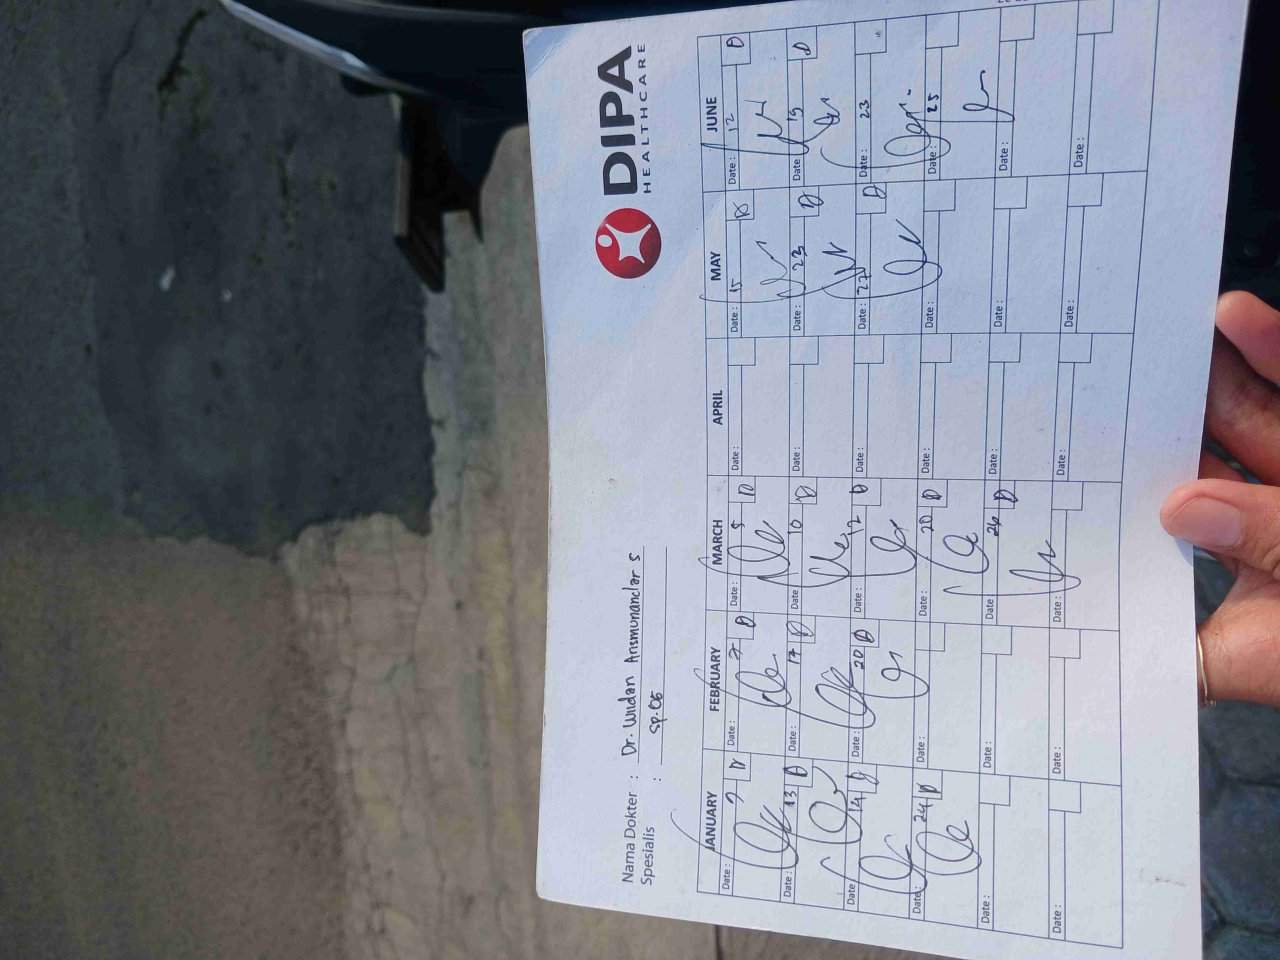 DIPA
HEALTHCARE
Nama Dokter : Dr. Wildan Ansmunandar S
Spesialis :
JANUARY FEBRUARY MARCH APRIL MAY JUNE
Date : 7 Date : 7 D Date : 5 D Date : Date : 15 Date : 12 D
Date : 13 D Date : 17 D Date : 10 D Date : Date : 23 D Date : 13 D
Date : 14 D Date : 20 D Date : 12 D Date : Date : 27 D Date : 23
Date : 24 D Date : Date : 20 D Date : Date : Date : 25
Date : Date : Date : 26 D Date : Date : Date :
Date : Date : Date : Date : Date : Date :